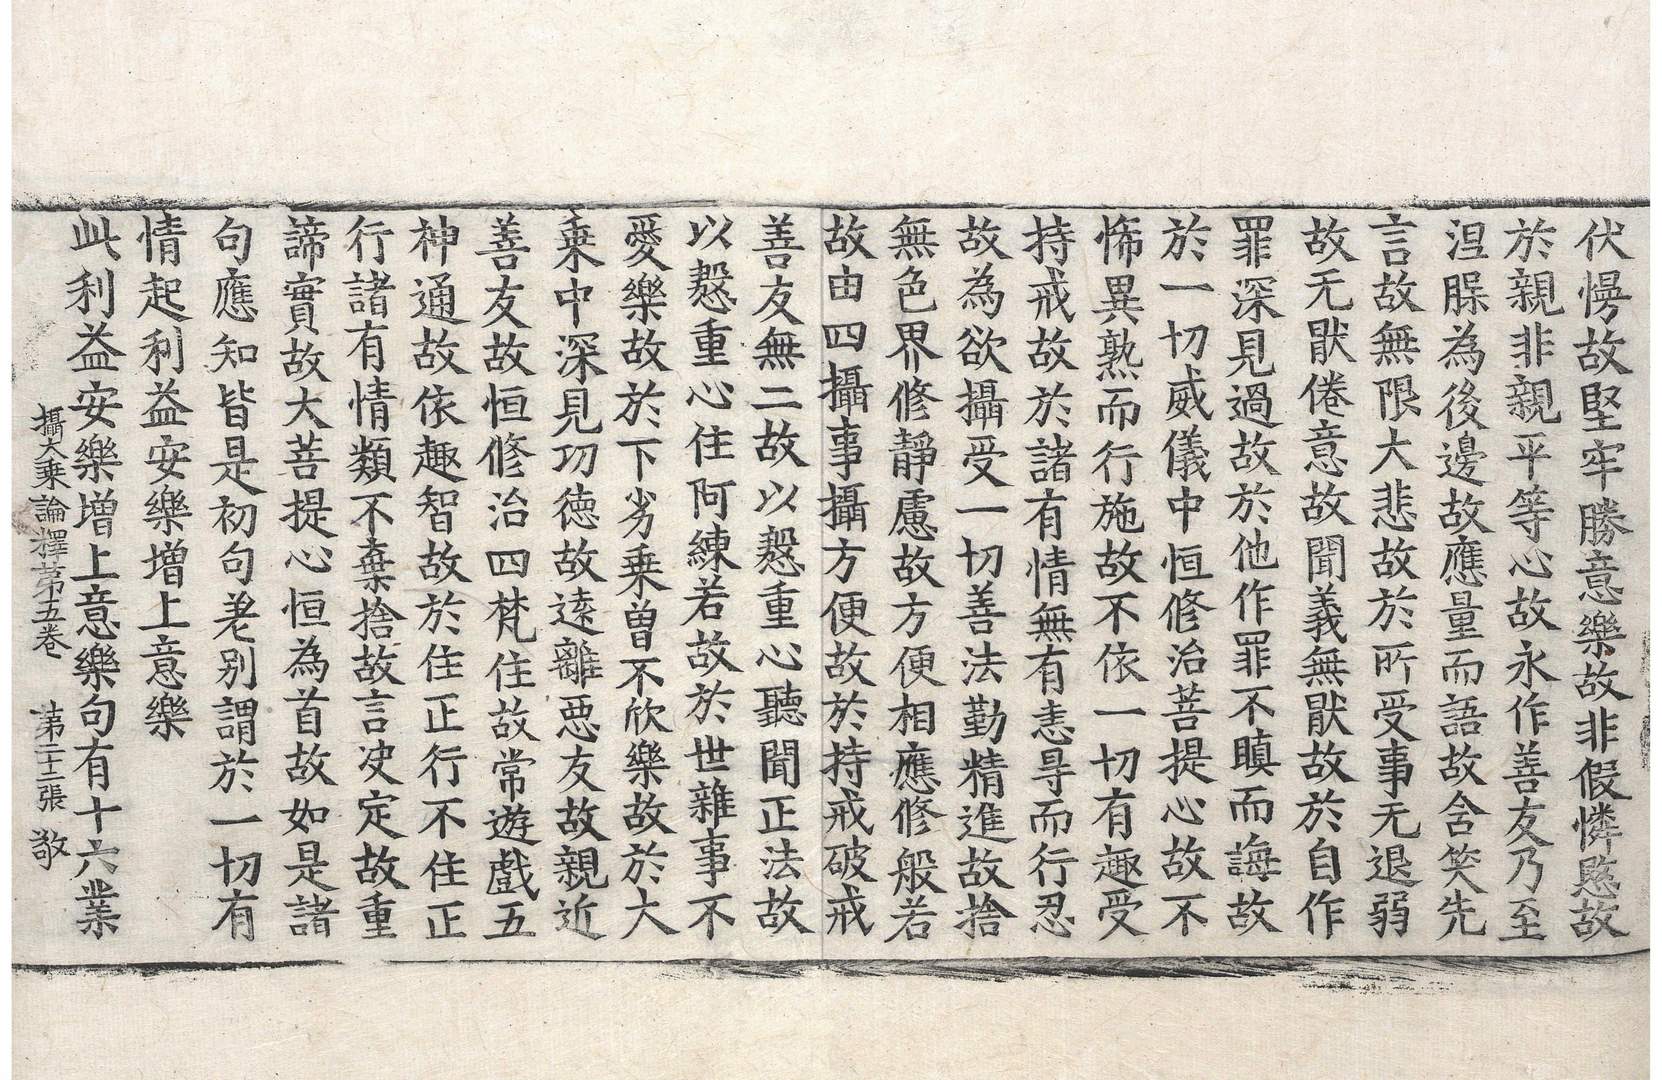 伏慢故堅牢勝意樂故非假憐愍故
於親非親平等心故永作善友乃至
涅脲為後邊故應量而語故含笑先
言故無限大悲故於所受事无退弱
故无猒倦意故聞義無猒故於自作
罪深見過故於他作罪不瞋而誨故
於一切威儀中恒修治菩提心故不
怖異熟而行施故不依一切有趣受
持戒故於諸有情無有恚㝵而行忍
故為欲攝受一切善法勤精進故捨
無色界修靜慮故方便相應修般若
故由四攝事攝方便故於持戒破戒
善友無二故以慇重心聽聞正法故
以慇重心住阿練若故於世雜事不
愛樂故於下劣乗曽不欣樂故於大
乗中深見功德故遠離惡友故親近
善友故恒修治四梵住故常遊戲五
神通故依趣智故於住正行不住正
行諸有情類不棄捨故言决定故重
諦實故大菩提心恒為首故如是諸
句應知皆是初句差別謂於一切有
情起利益安樂增上意樂
此利益安樂增上意樂句有十六業
攝大乗論釋第五卷 第二十二張 敬